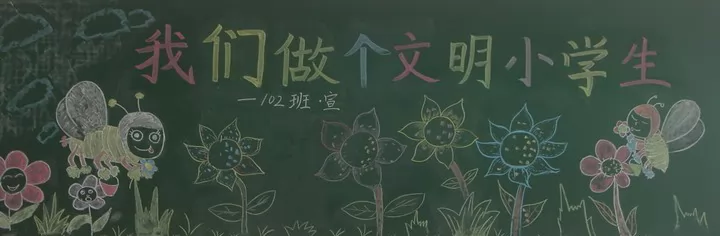 我们做个文明小学生
一102班·宣